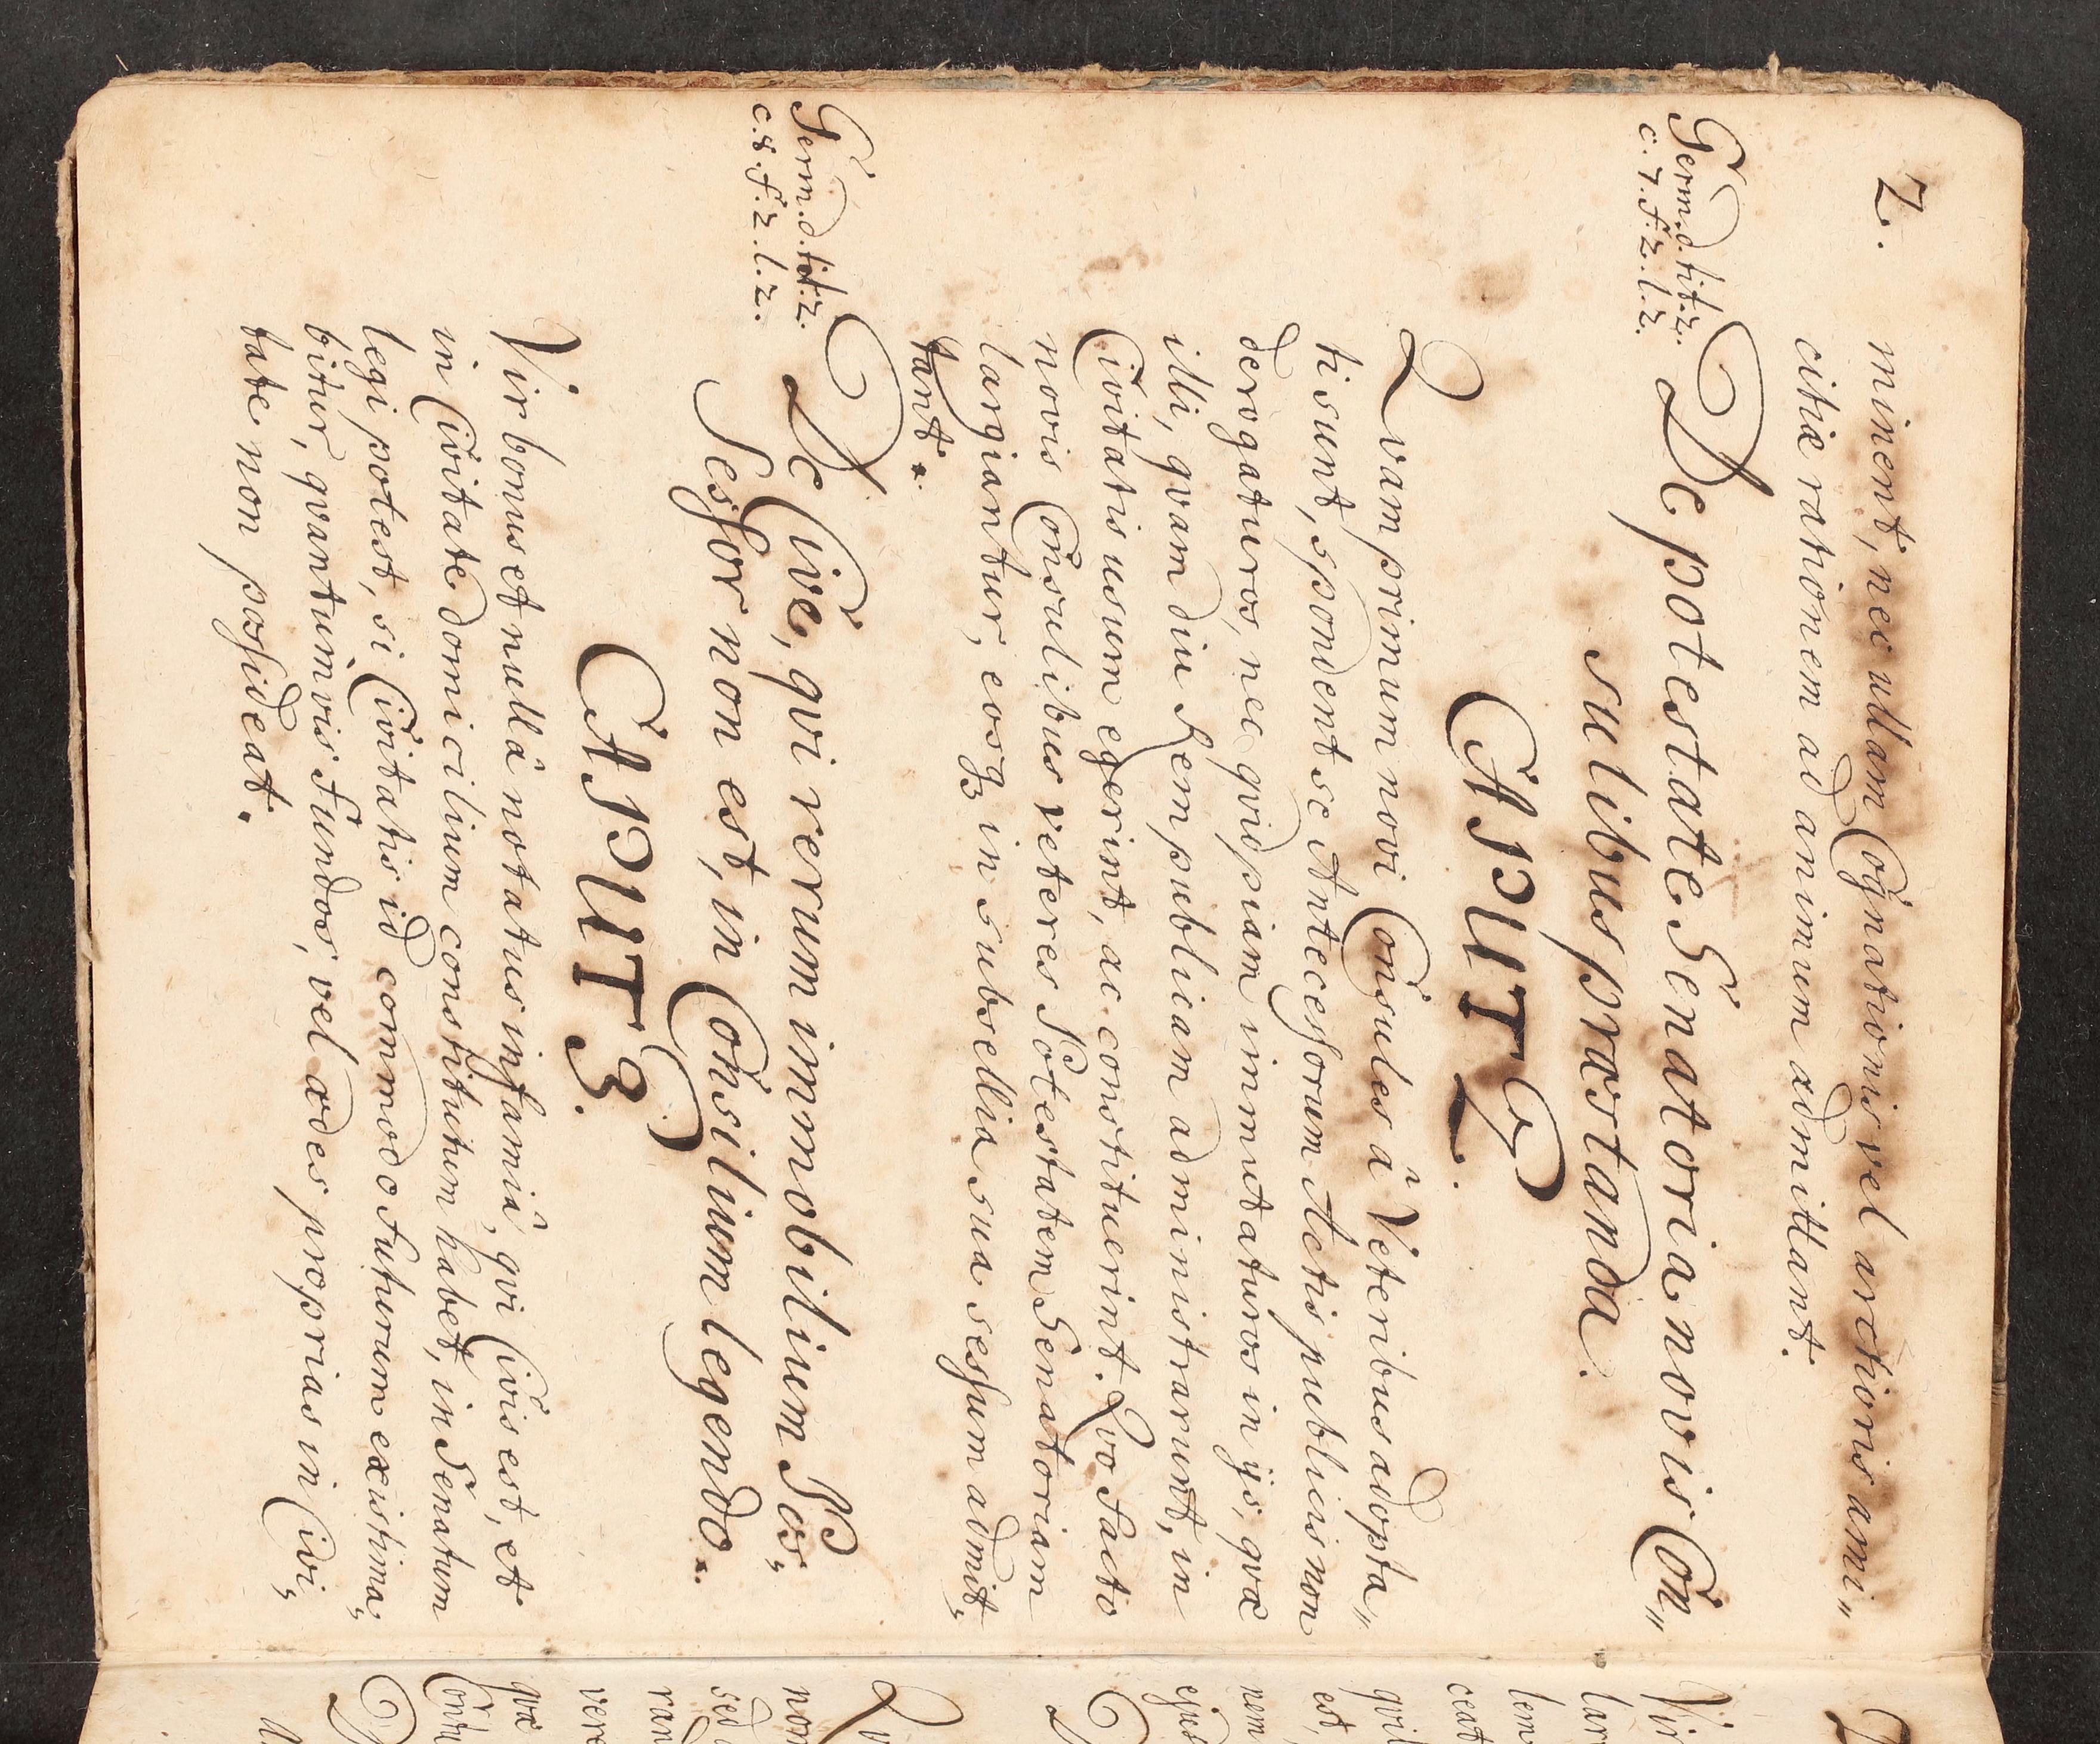 2.
minent, nec ullam Cognationis vel arctioris ami„
citiæ rationem ad animum admittant.
Germ. d. tit. 2.
c. 7. f. 2. l. 2.
De potestate Senatoria novis Con„
sulibus præstanda.
CAPUT 2.
Qvam primum novi Consules â Veteribus adopta„
ti sunt, spondent se Antecessorum Actis publicis non
derogaturos, nec qvidpiam immutaturos in ijs, qvæ
illi, qvam diu Rempublicam administrarunt, in
Civitatis usum egerint, ac constituerint. Qvo facto
novis Consulibus veteres Potestatem Senatoriam
largiantur, eosqꝫ in subsellia sua sessum admit„
tant.
Germ. d. tit. 2.
c. 8. f. 2. l. 2.
De Cive, qvi rerum immobilium Pos„
sessor non est, in Consilium legendo.
CAPUT 3.
Vir bonus et nullâ notatus infamiâ, qvi Civis est, et
in Civitate domicilium constitutum habet, in Senatum
legi potest, si Civitatis id commodo futurum existima„
bitur, qvantumvis Fundos, vel ædes proprias in Civi„
tate non possideat.
Vir
larr
lem
ceat
qvil
est,
nem
ejus
Qv
non
sed
ran
vere
qvæ
Cons